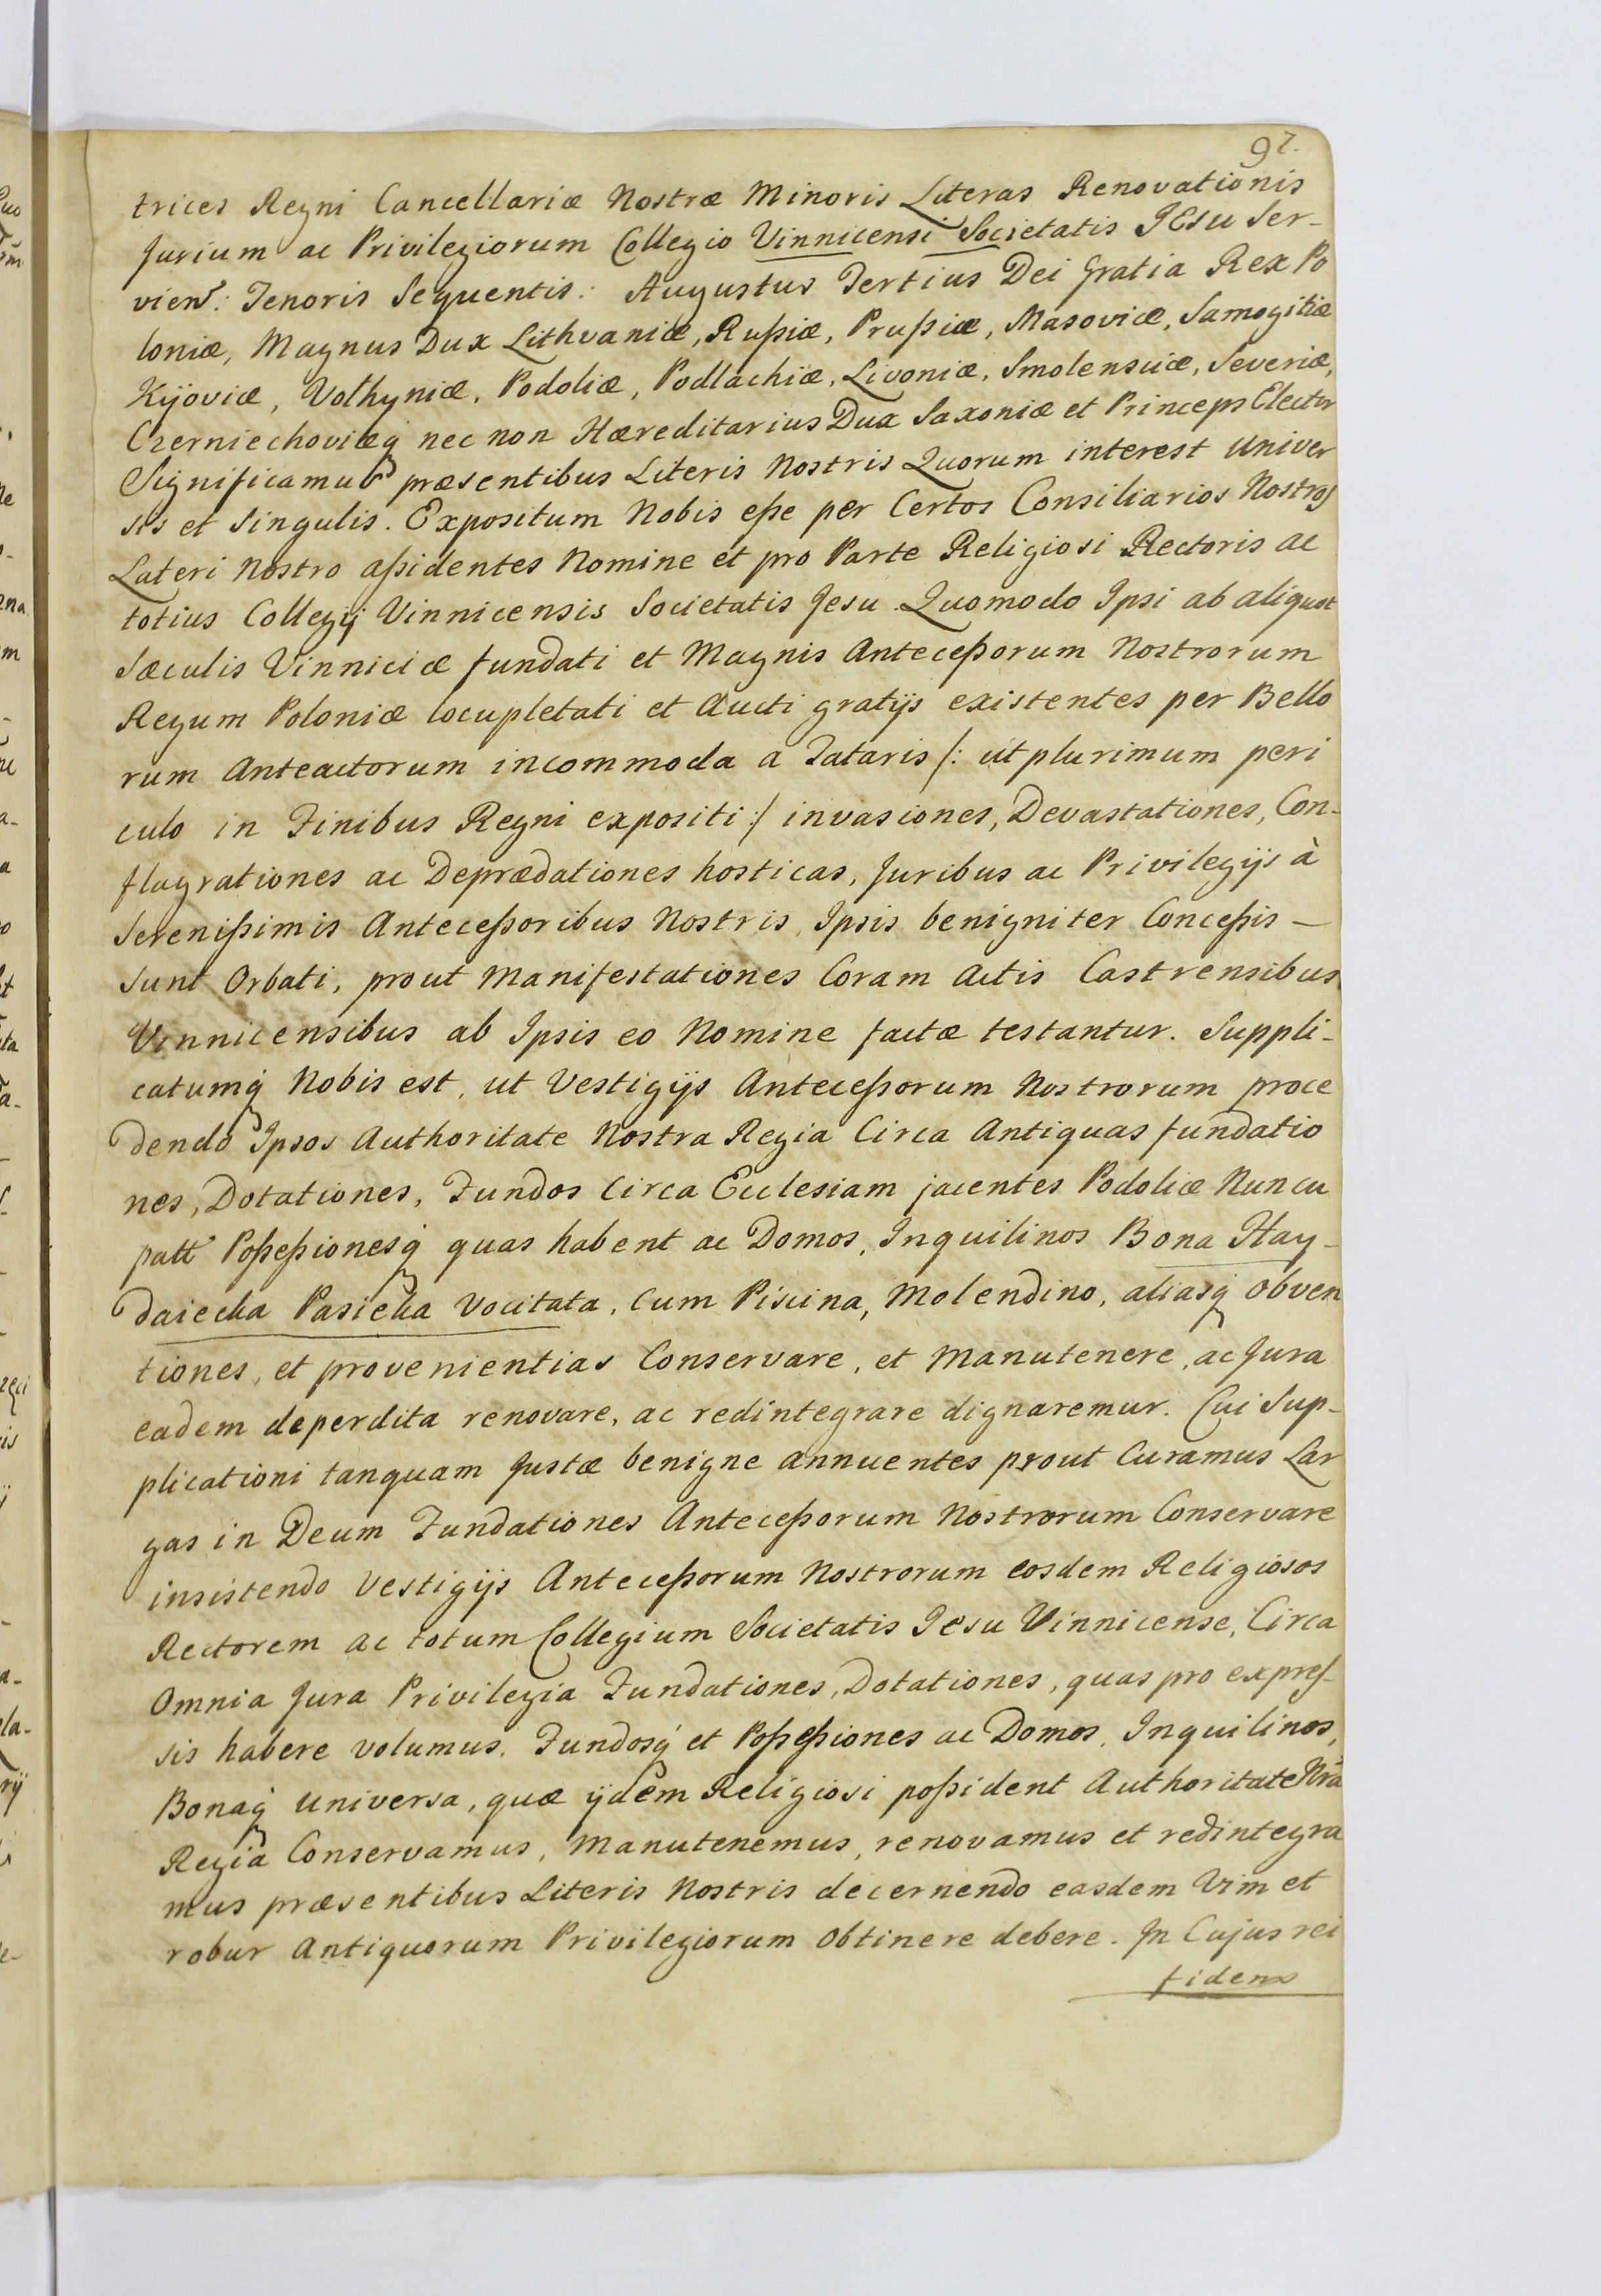 97.
trices Regni Cancellariæ Nostræ Minoris Literas Renovationis
Jurium ac Privilegiorum Collegio Vinnicensi Societatis JEsu Ser-
vien: Tenoris Sequentis: Augustus Tertius Dei Gratia Rex Po
loniæ, Magnus Dux Lithvaniæ, Rußiæ, Prußiæ, Masoviæ, Samogitiæ
Kijoviæ, Volhyniæ, Podoliæ, Podlachiæ, Livoniæ, Smolensciæ, Severiæ,
Czerniechoviæq́ nec non Hæreditarius Dux Saxoniæ et Princeps Elector
Significamus præsentibus Literis Nostris Quorum interest univer
sis et singulis. Expositum Nobis eße per Certos Consiliarios Nostros
Lateri Nostro aßidentes Nomine et pro Parte Religiosi Rectoris ac
totius Collegij Vinnicensis Societatis Jesu. Quomodo Ipsi ab aliquot
Sæculis Vinniciæ fundati et Magnis Anteceßorum Nostrorum
Regum Poloniæ locupletati et Aucti gratijs existentes per Bello
rum Anteactorum incommoda a Tataris /: ut plurimum peri
culo in Finibus Regni expositi :/ invasiones, Devastationes, Con-
flagrationes ac Deprædationes hosticas, Juribus ac Privilegijs à
Serenißimis Anteceßoribus Nostris, Ipsis benigniter Conceßis —
sunt Orbati, prout Manifestationes Coram Actis Castrensibus
Vinnicensibus ab Ipsis eo Nomine factæ testantur. Suppli-
catumq́ Nobis est, ut Vestigijs Anteceßorum Nostrorum proce
dendo Ipsos Authoritate Nostra Regia Circa Antiquas fundatio
nes, Dotationes, Fundos Circa Ecclesiam jacentes Podoliæ Nuncu
patt Poßeßionesq́ quas habent ac Domos, Inquilinos Bona Hay-
daiecka Pasieka Vocitata, Cum Piscina, Molendino, aliasq́ obven
tiones, et provenientias Conservare, et Manutenere, ac Jura
eadem deperdita renovare, ac redintegrare dignaremur. Cui Sup-
plicationi tanquam Justæ benigne annuentes prout Curamus Lar
gas in Deum Fundationes Anteceßorum Nostrorum Conservare
insistendo Vestigijs Anteceßorum Nostrorum eosdem Religiosos
Rectorem ac totum Collegium Societatis Jesu Vinnicense, Circa
Omnia Jura Privilegia Fundationes, Dotationes, quas pro expres-
sis habere volumus. Fundosq́ et Poßeßiones ac Domos, Inquilinos,
Bonaq́ universa, quæ ijdem Religiosi poßident Authoritate Nrã
Regia Conservamus, Manutenemus, renovamus et redintegra
mus præsentibus Literis Nostris decernendo easdem Vim et
robur Antiquorum Privilegiorum Obtinere debere. In Cujus rei
fidem